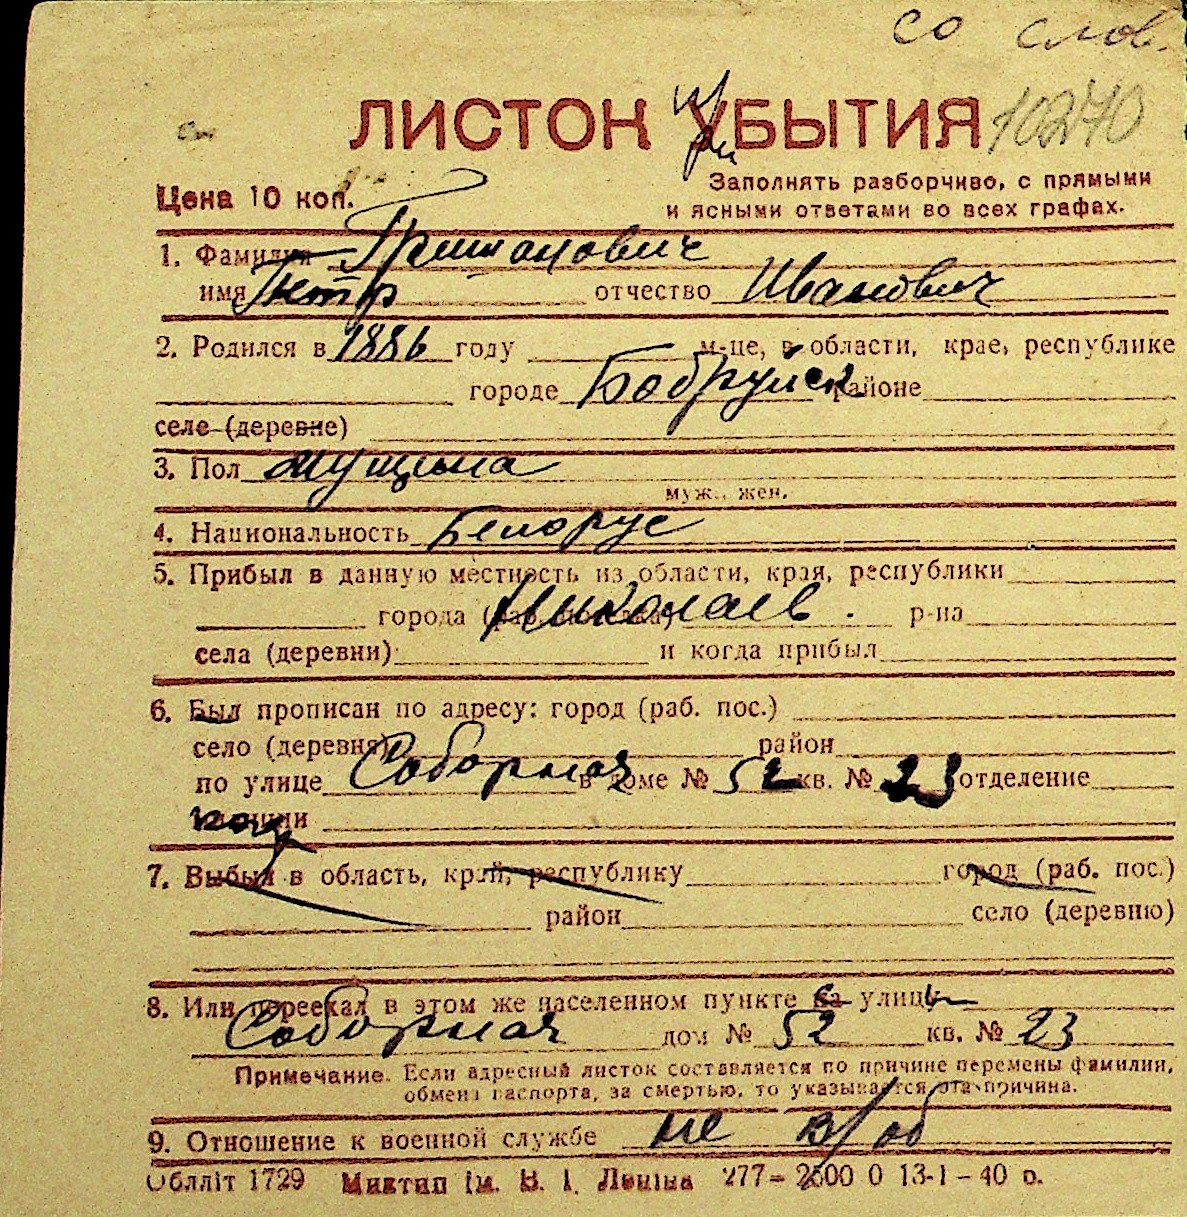 со слов.
ЛИСТОК УБЫТИЯ 10270
при
Цена 10 коп.
Заполнять разборчиво, с прямыми
и ясными ответами во всех графах.
1. Фамилия Гришанович
имя Петр отчество Иванович
2. Родился в 1886 году м-це, в области, крае, республике
городе Бобруйск районе
селе (деревне)
3. Пол мущина
муж., жен.
4. Национальность Белорус
5. Прибыл в данную местность из области, края, республики
города (раб. поселка) Николаев. р-на
села (деревни) и когда прибыл
6. Был прописан по адресу: город (раб. пос.)
село (деревня) район
по улице Соборная в доме № 52 кв. № 23 отделение
милиции
7. Выбыл в область, край, республику город (раб. пос.)
район село (деревню)
8. Или переехал в этом же населенном пункте на улицу
Соборная дом № 52 кв. № 23
Примечание. Если адресный листок составляется по причине перемены фамилии,
обмена паспорта, за смертью, то указывается эта причина.
9. Отношение к военной службе не в/об
Облліт 1729 Миктип ім. В. І. Леніна 277—2500 0 13-1—40 р.